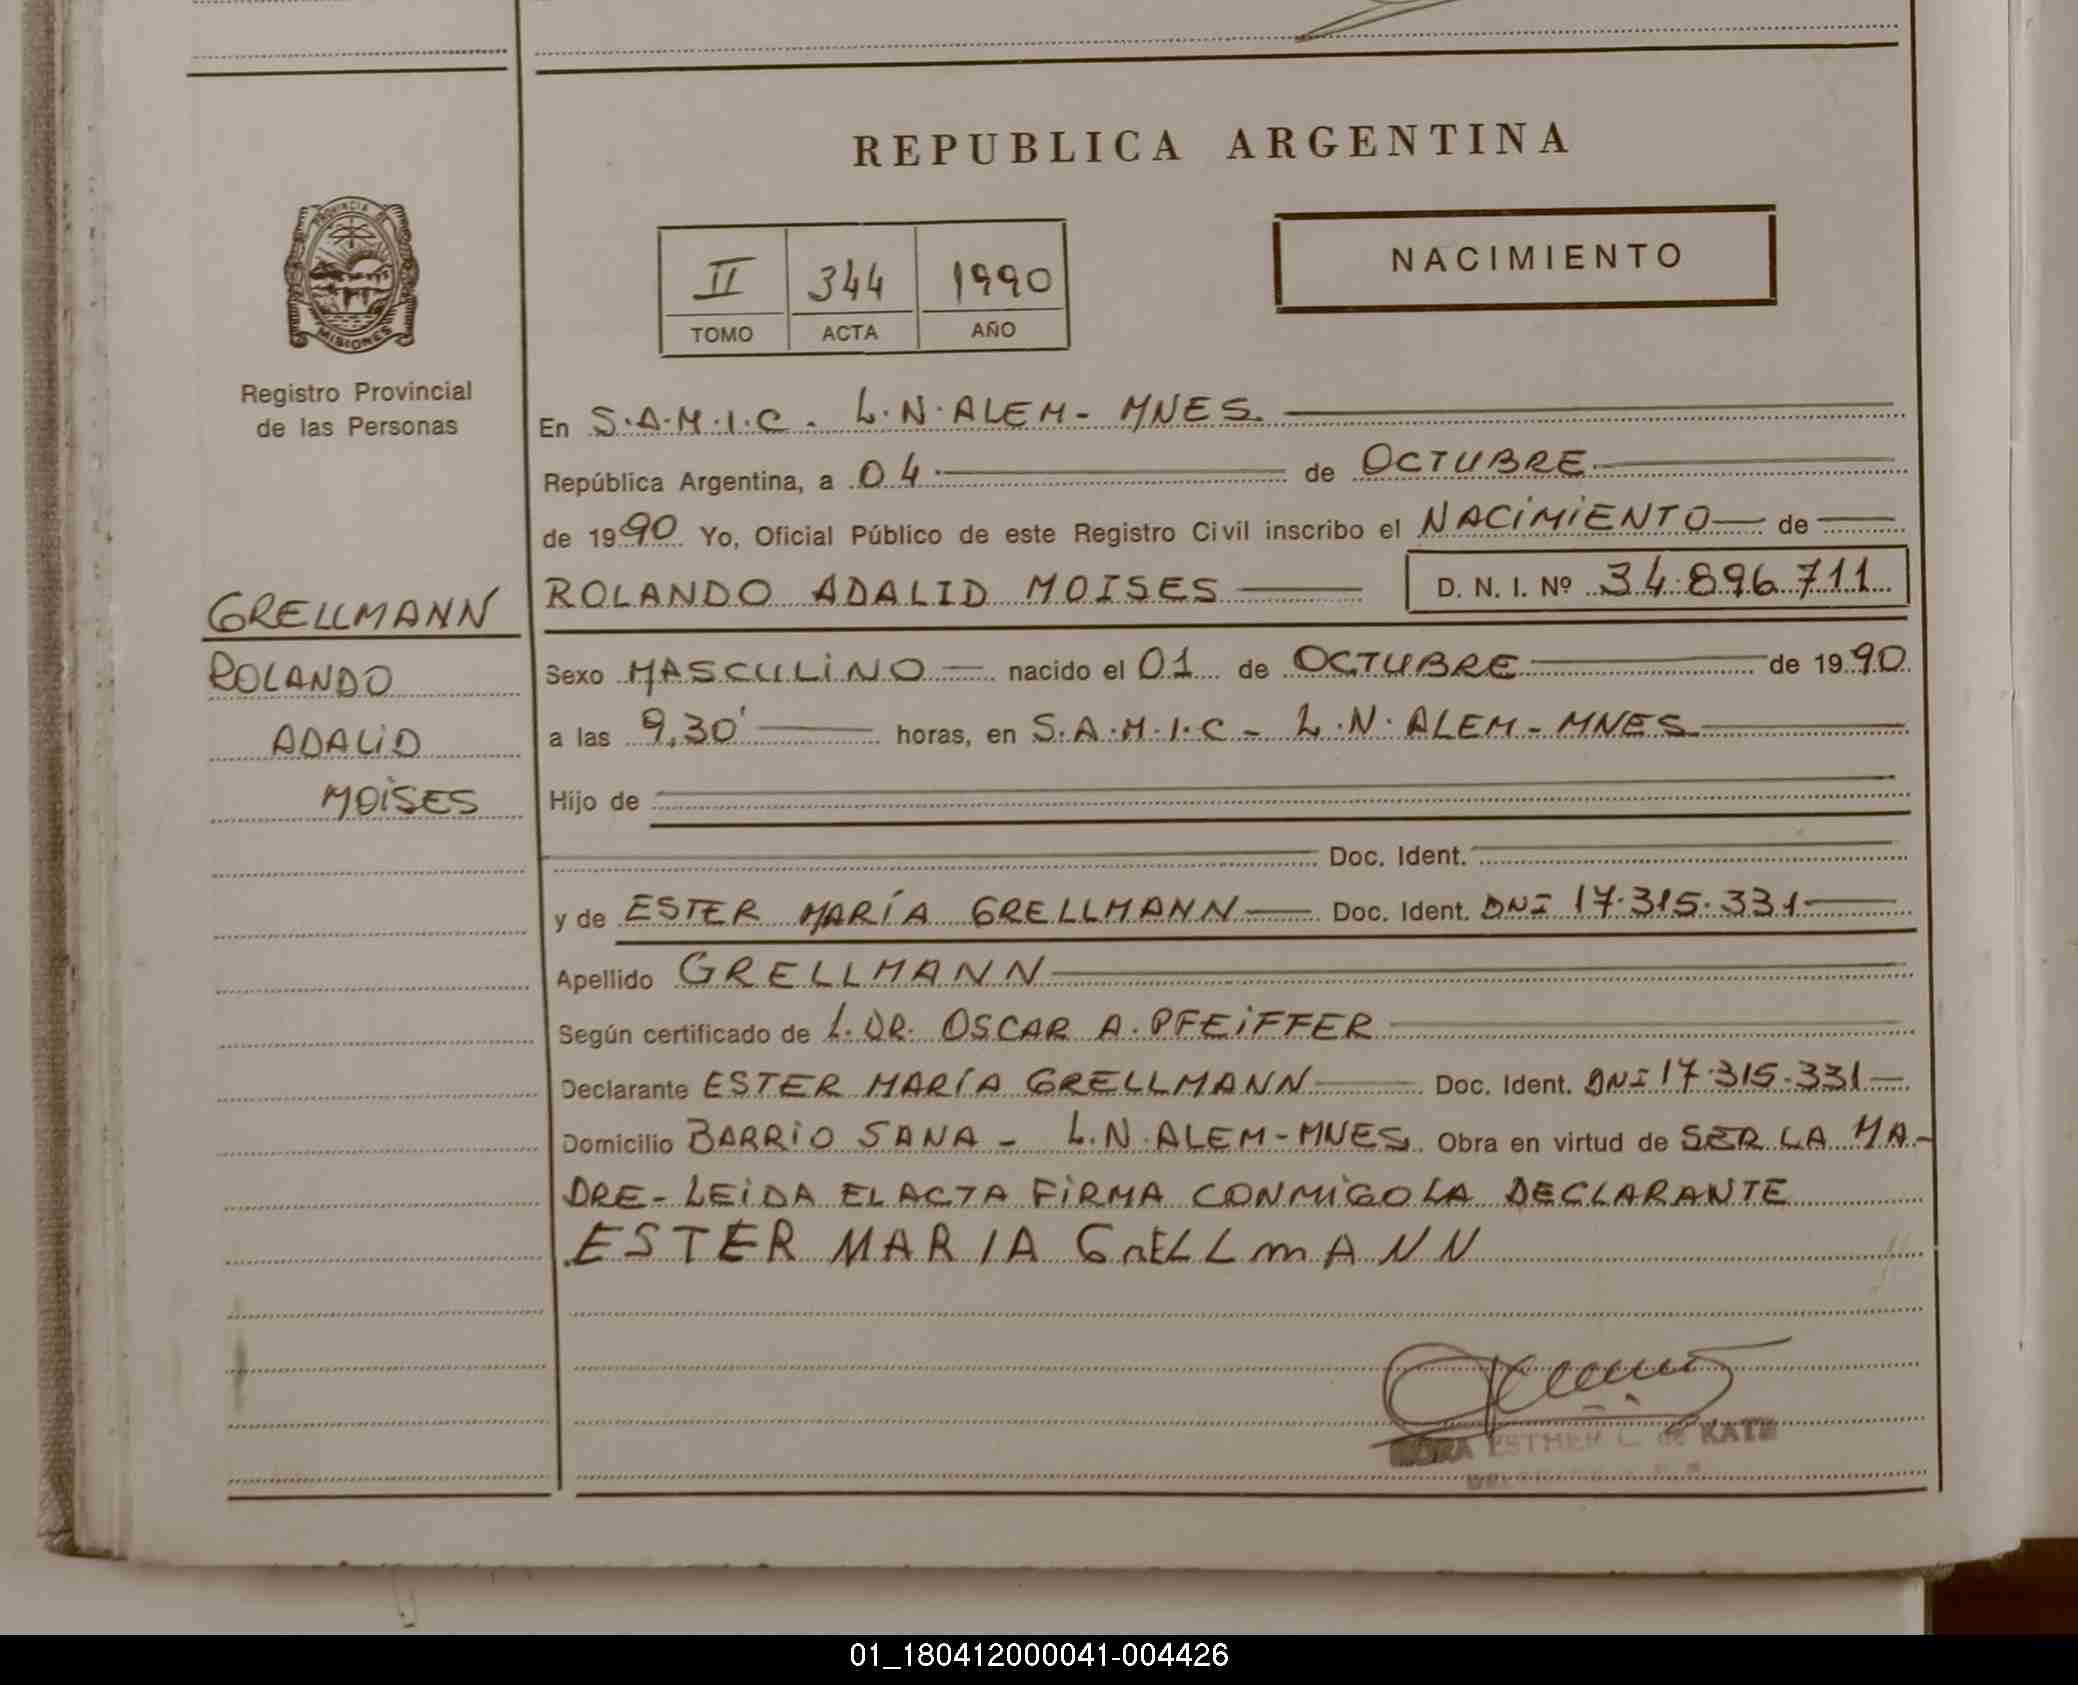 REPUBLICA ARGENTINA
PROVINCIA DE
MISIONES
Registro Provincial
de las Personas
II 344 1990
TOMO ACTA AÑO
NACIMIENTO
En S.A.M.I.C. L.N.ALEM- MNES.
República Argentina, a 04 de OCTUBRE
de 1990 Yo, Oficial Público de este Registro Civil inscribo el NACIMIENTO de
ROLANDO ADALID MOISES D. N. I. Nº 34.896.711
GRELLMANN
ROLANDO
ADALID
MOISES
Sexo MASCULINO nacido el 01 de OCTUBRE de 1990
a las 9,30' horas, en S.A.M.I.C - L.N.ALEM-MNES
Hijo de
Doc. Ident.
y de ESTER MARÍA GRELLMANN Doc. Ident. DNI 17.315.331
Apellido GRELLMANN
Según certificado de L. DR. OSCAR A. PFEIFFER
Declarante ESTER MARÍA GRELLMANN Doc. Ident. DNI 17.315.331
Domicilio BARRIO SANA - L.N.ALEM-MNES. Obra en virtud de SER LA MA-
DRE- LEIDA EL ACTA FIRMA CONMIGO LA DECLARANTE
ESTER MARIA GRELLMANN
ESTHER C. de KATZ
01_180412000041-004426